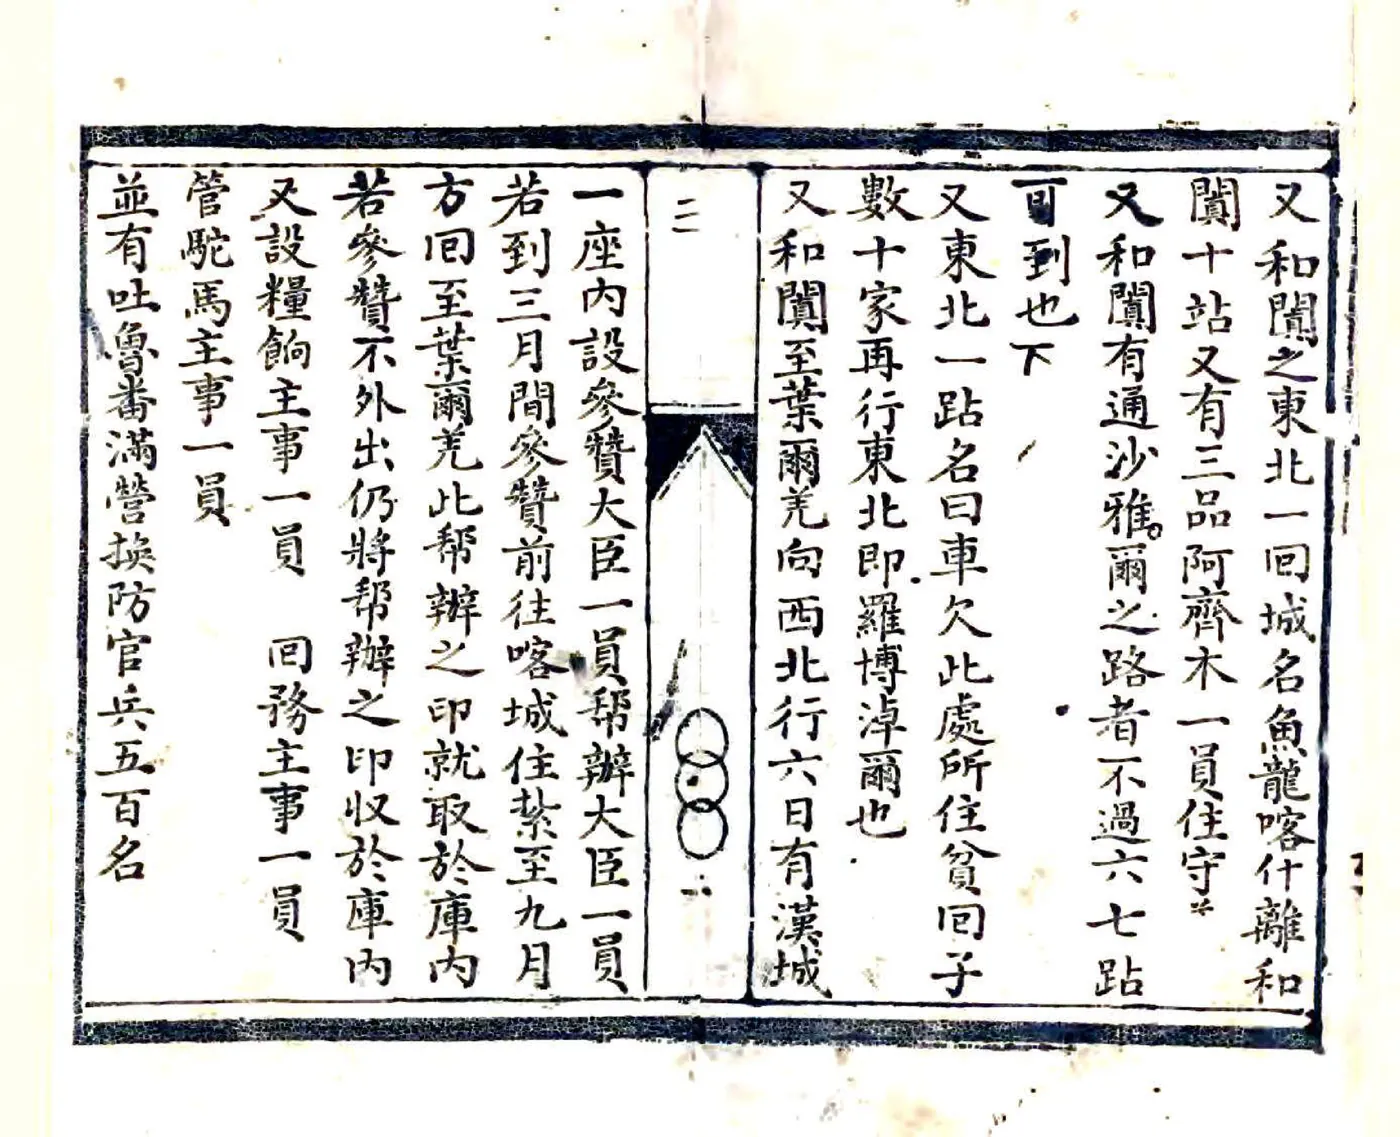 又和闐之東北一回城名魚龍喀什離和
闐十站又有三品阿齊木一員住守
又和闐有通沙雅爾之路者不過六七跕
可到也下
又東北一跕名曰車欠此處所住貧回子
數十家再行東北即羅博淖爾也
又和闐至葉爾羌向西北行六日有漢城
二
一座內設參贊大臣一員帮辦大臣一員
若到三月間參贊前往喀城住紮至九月
方回至葉爾羌此帮辦之印就取於庫內
若參贊不外出仍將帮辦之印收於庫內
又設糧餉主事一員 回務主事一員
管駝馬主事一員
並有吐魯番滿營換防官兵五百名